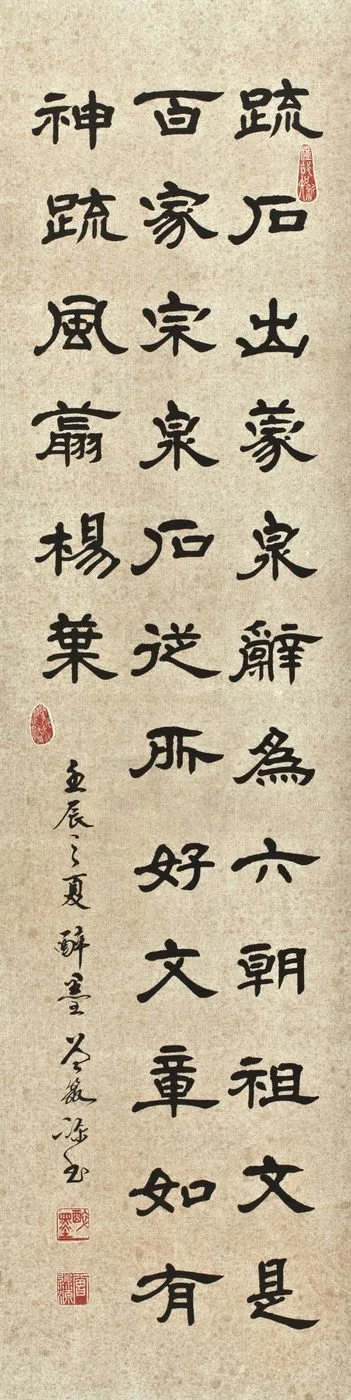 疏石出蒙泉辭為六朝祖文是
百家宗泉石從所好文章如有
神疏風翦楊葉
壬辰之夏醉墨書
醉墨